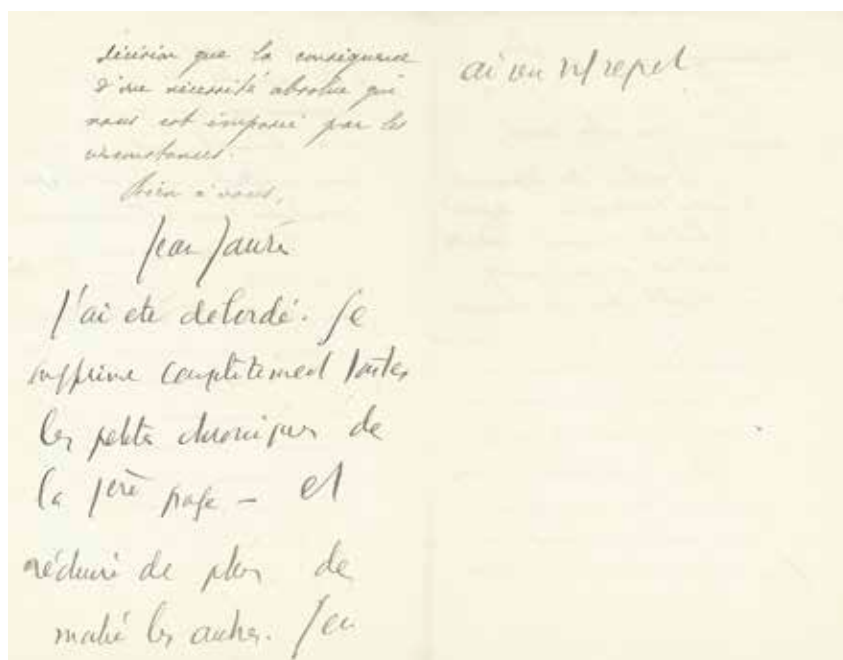 décision que la conséquence
d'une nécessité absolue qui
nous est imposée par les
circonstances.
Bien à vous,
Jean Jaurès
J'ai été débordé. Je
supprime complètement toutes
les petites chroniques de
la 1ère page — et
réduis de plus de
moitié les autres. J'en
ai un vif regret